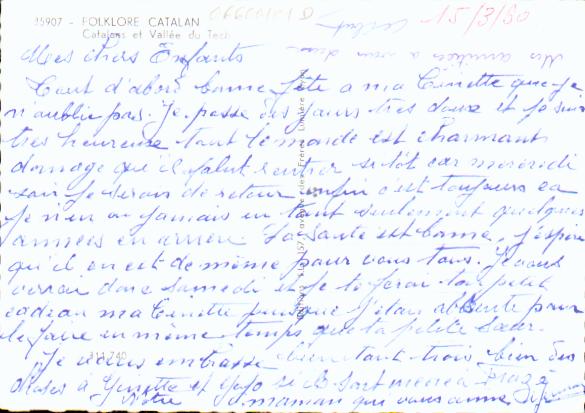 35907 - FOLKLORE CATALAN
Catalans et Vallée du Tech
15/3/80
Mes chers Enfants
Tout d'abord bonne fête a ma Ginette que je
n'oublie pas. Je passe des jours tres doux et je suis
tres heureuse tout le monde est charmant
domage qu'il falut rentrer sitôt car mercredi
soir je serais de retour enfin c'est toujours ca
je n'en ai jamais eu tant seulement quelques
années en arriere la santé est bonne, j'espère
qu'il en est de même pour vous tous. Je vous
verrai donc samedi et je te ferai ton petit
cadeau ma Ginette puisque j'étais absente pour
le faire en même temps que ta petite sœur.
311740
Je vous embrasse bien tous trois bien des
choses a Ginette et
Votre maman que vous aime